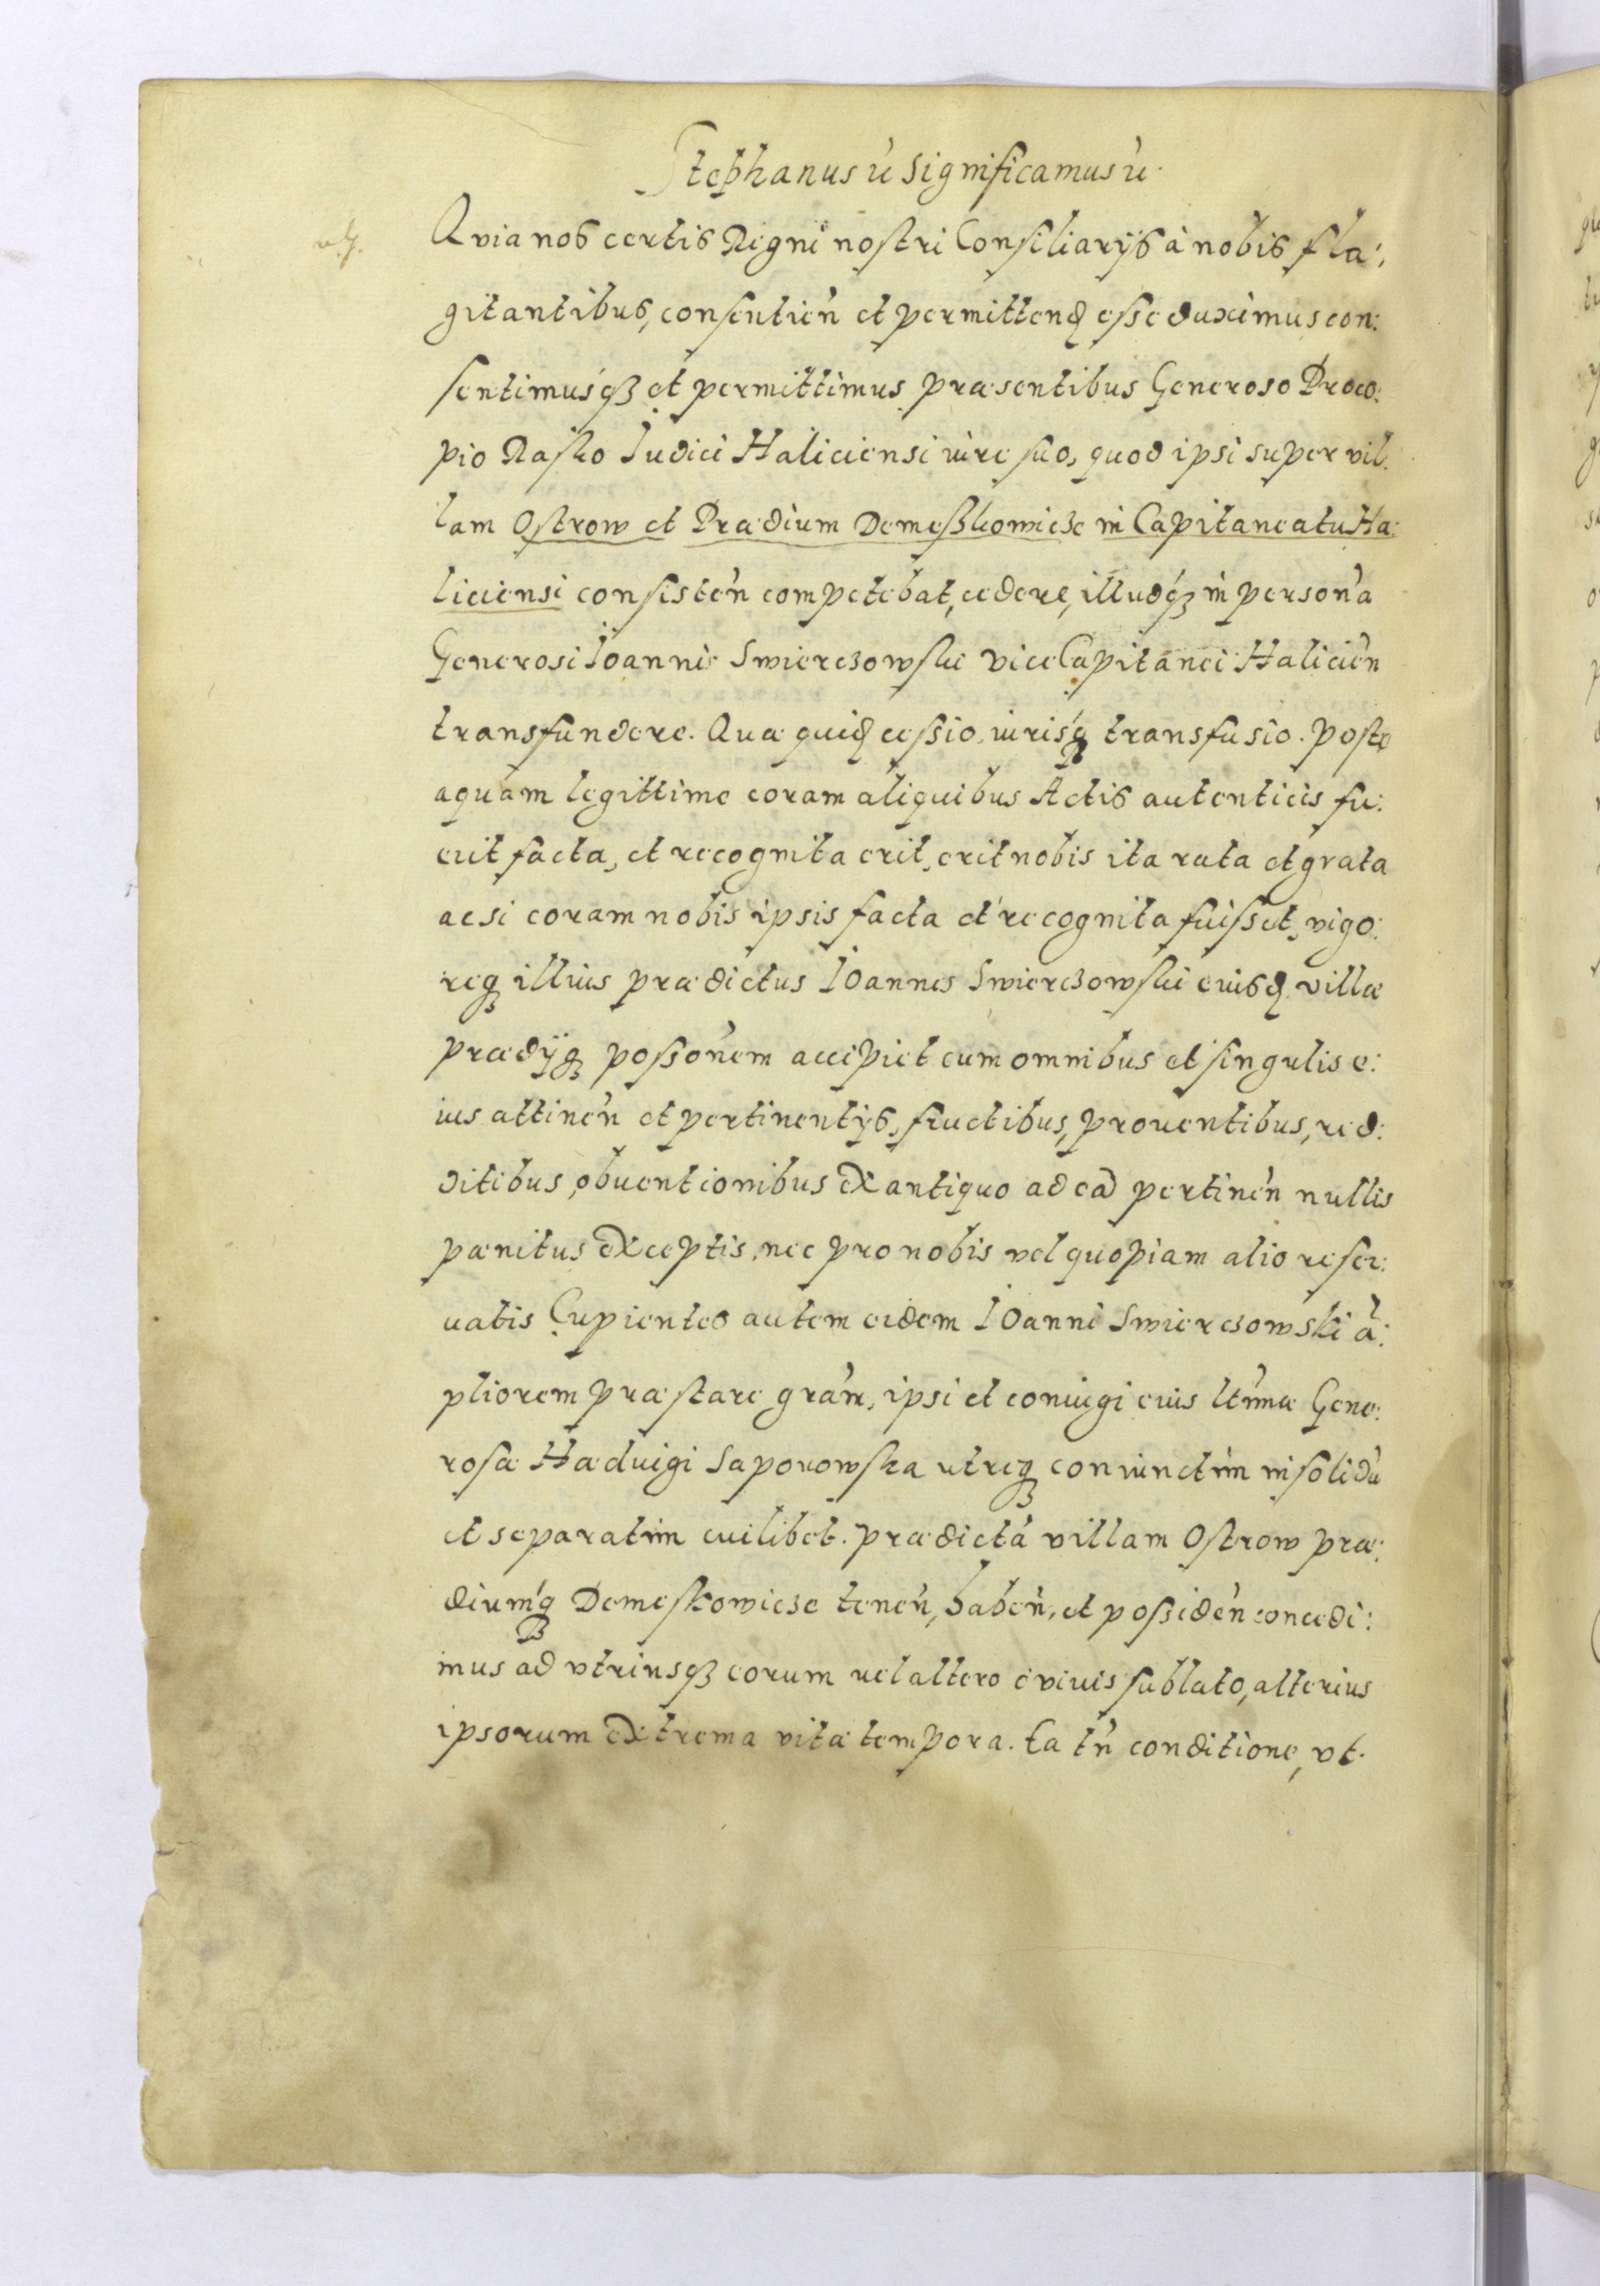 Stephanus ữ Significamus ữ.
Quia nos certis Regni nostri Consiliarijs à nobis fla:
gitantibus, consentien̄ et permittend̨ esse duximus con:
sentimusq́ʒ et permittimus præsentibus Generoso Proco:
pio Rasko Iudici Haliciensi iure suo, quod ipsi super vil:
lam Ostrow et Prædium Demeszkowicze in Capitaneatu Ha:
liciensi consisten̄ competebat, cedere, illudq́ʒ in personā
Generosi Ioannis Swierczowski viceCapitanei Halicien̄
transfundere. Quæ quid̨ cessio, iurisq́ʒ transfusio. poste
aquam legittime coram aliquibus Actis autenticis fu:
erit facta, et recognita erit, erit nobis ita rata et grata
acsi coram nobis ipsis facta et recognita fuisset, vigo:
reqʒ illius prædictus IOannes Swierczowski eiusd̨ villæ
prædijqʒ posso̅nem accipiet cum omnibus et singulis e:
ius attinen̄ et pertinentijs, fructibus, prouentibus, red:
ditibus, obuentionibus ex antiquo ad eā pertinen̄ nullis
pænitus exceptis, nec pro nobis vel quopiam alio reser:
uatis Cupientes autem eidem IOanni Swierczowski ā:
pliorem præstare grām, ipsi et coniugi eius ltimæ Gene:
rosæ Hæduigi Saporowska utreqʒ coniunctim insolidū
et separatim cuilibet. prædictā villam Ostrow præ:
diumq́ʒ Demeskowicze tenen̄, haben̄, et possiden̄ concedi:
mus ad vtriusqʒ eorum uel altero e viuis sublato, alterius
ipsorum extrema vitæ tempora. Ea tn̄ conditione, vt.